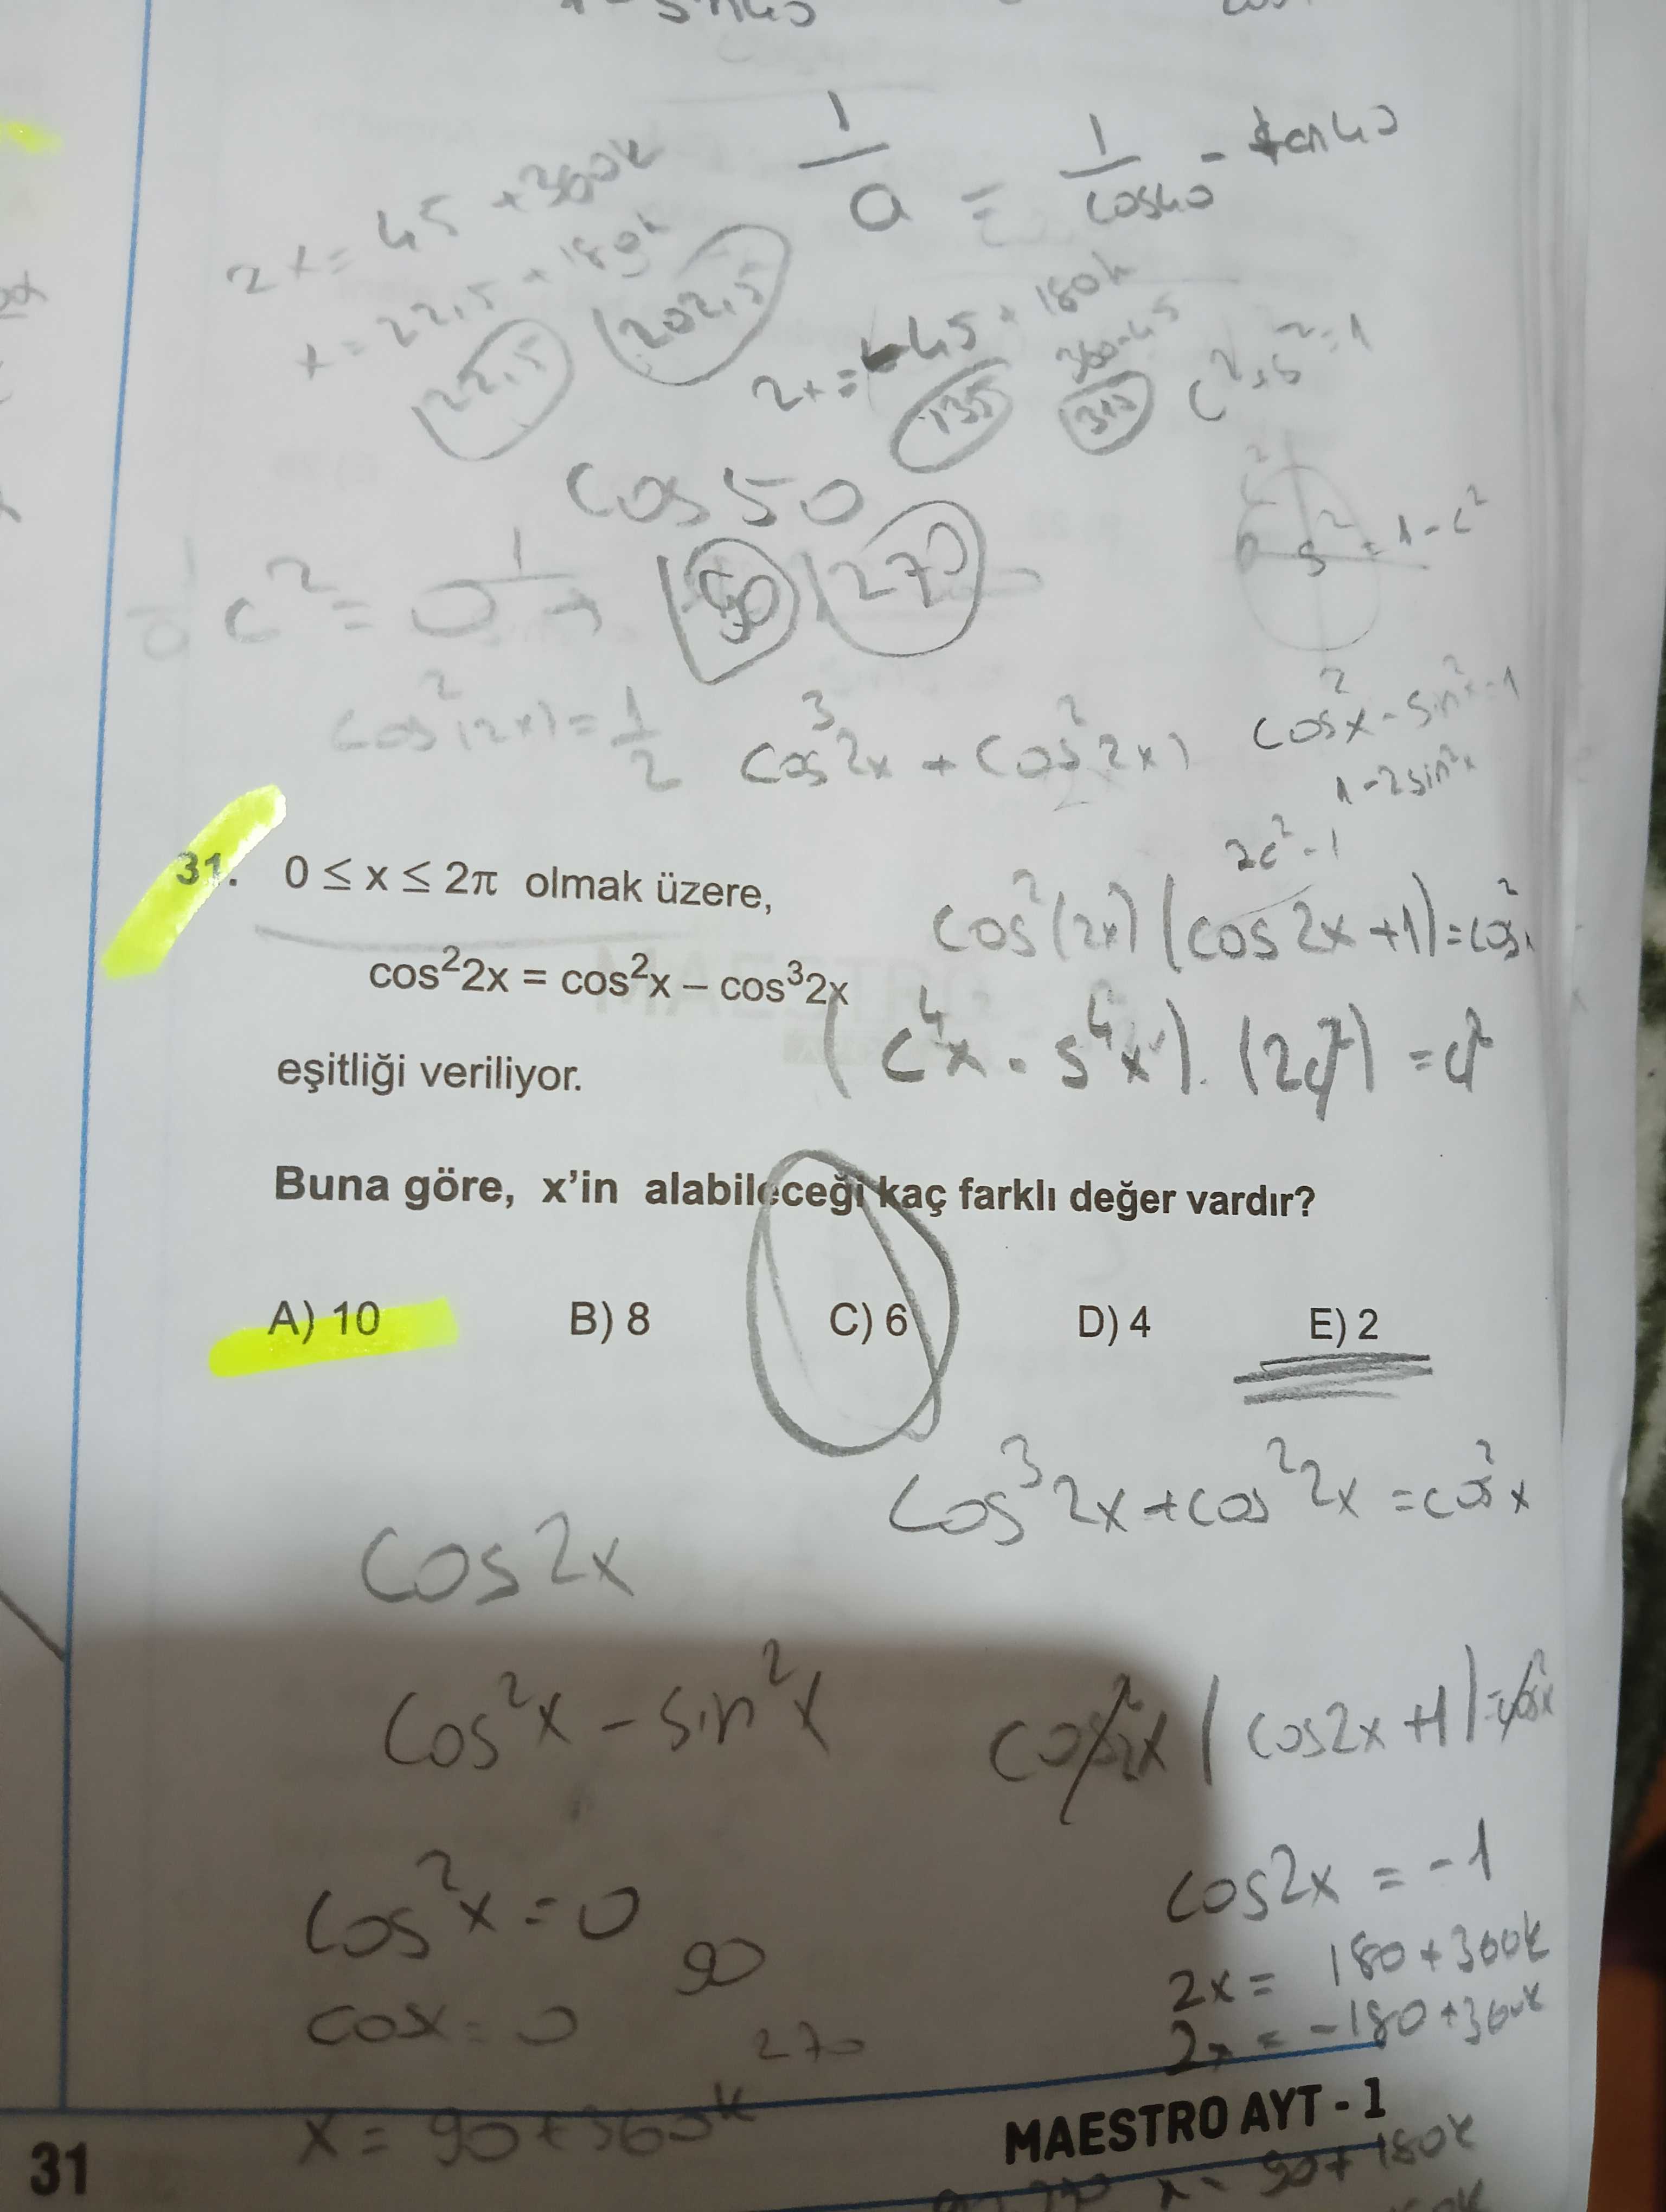 1/a = 1/cos40 - tan40
2x = 45 + 360k
x = 22,5 + 180k
22,5 202,5
2x = -45 + 180k
360-45
135 315
c² + s² = 1
cos50
s² = 1 - c²
c² = 0 → 90 270
cos²(2x) = 1/2
cos³2x + cos²2x)
cos²x - sin²x
1 - 2sin²x
2c² - 1
31. 0 ≤ x ≤ 2π olmak üzere,
cos²(2x) (cos2x + 1) = cos²x
cos²2x = cos²x – cos³2x
(c⁴x - s⁴x) . (2c²) = c²
eşitliği veriliyor.
Buna göre, x'in alabileceği kaç farklı değer vardır?
A) 10 B) 8 C) 6 D) 4 E) 2
cos³2x + cos²2x = cos²x
cos2x
cos²x - sin²x
cos²2x (cos2x + 1) = cos²x
cos²x = 0
90
cos2x = -1
2x = 180 + 360k
cosx = 0
270
2x = -180 + 360k
x = 90 + 360k
MAESTRO AYT - 1
31
x = 90 + 180k